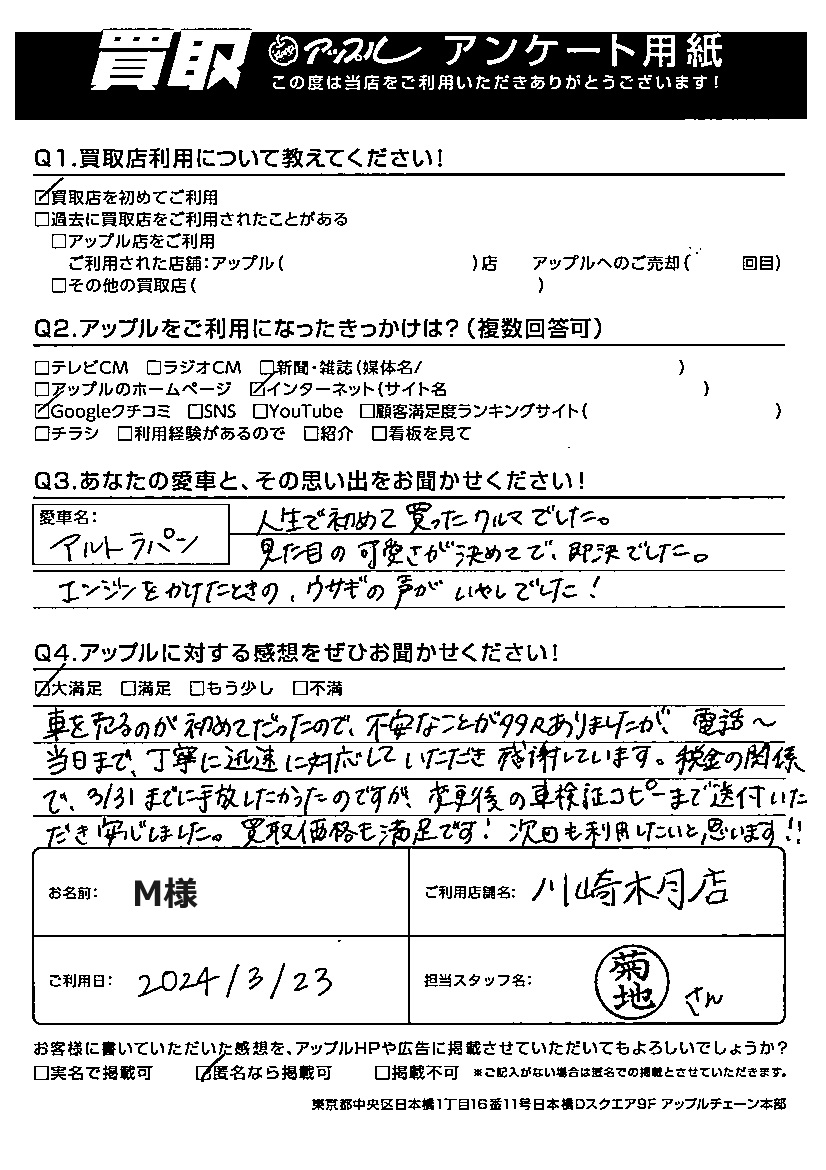 買取 アップル アンケート用紙
この度は当店をご利用いただきありがとうございます!
Q1.買取店利用について教えてください!
☑買取店を初めてご利用
□過去に買取店をご利用されたことがある
□アップル店をご利用
ご利用された店舗:アップル( )店 アップルへのご売却( 回目)
□その他の買取店( )
Q2.アップルをご利用になったきっかけは?(複数回答可)
□テレビCM □ラジオCM □新聞・雑誌(媒体名/ )
□アップルのホームページ ☑インターネット(サイト名 )
☑Googleクチコミ □SNS □YouTube □顧客満足度ランキングサイト( )
□チラシ □利用経験があるので □紹介 □看板を見て
Q3.あなたの愛車と、その思い出をお聞かせください!
愛車名:
アルトラパン
人生で初めて買ったクルマでした。
見た目の可愛さが決めてで、即決でした。
エンジンをかけたときの、ウサギの声がいやしでした!
Q4.アップルに対する感想をぜひお聞かせください!
☑大満足 □満足 □もう少し □不満
車を売るのが初めてだったので、不安なことが多々ありましたが、電話〜
当日まで、丁寧に迅速に対応していただき感謝しています。税金の関係
で、3/31までに手放したかったのですが、変更後の車検証コピーまで送付いた
だき安心しました。買取価格も満足です!次回も利用したいと思います!!
お名前: M様 ご利用店舗名: 川崎木月店
ご利用日: 2024/3/23 担当スタッフ名: 菊地さん
お客様に書いていただいた感想を、アップルHPや広告に掲載させていただいてもよろしいでしょうか?
□実名で掲載可 ☑匿名なら掲載可 □掲載不可 ※ご記入がない場合は匿名での掲載とさせていただきます。
東京都中央区日本橋1丁目16番11号日本橋Dスクエア9F アップルチェーン本部